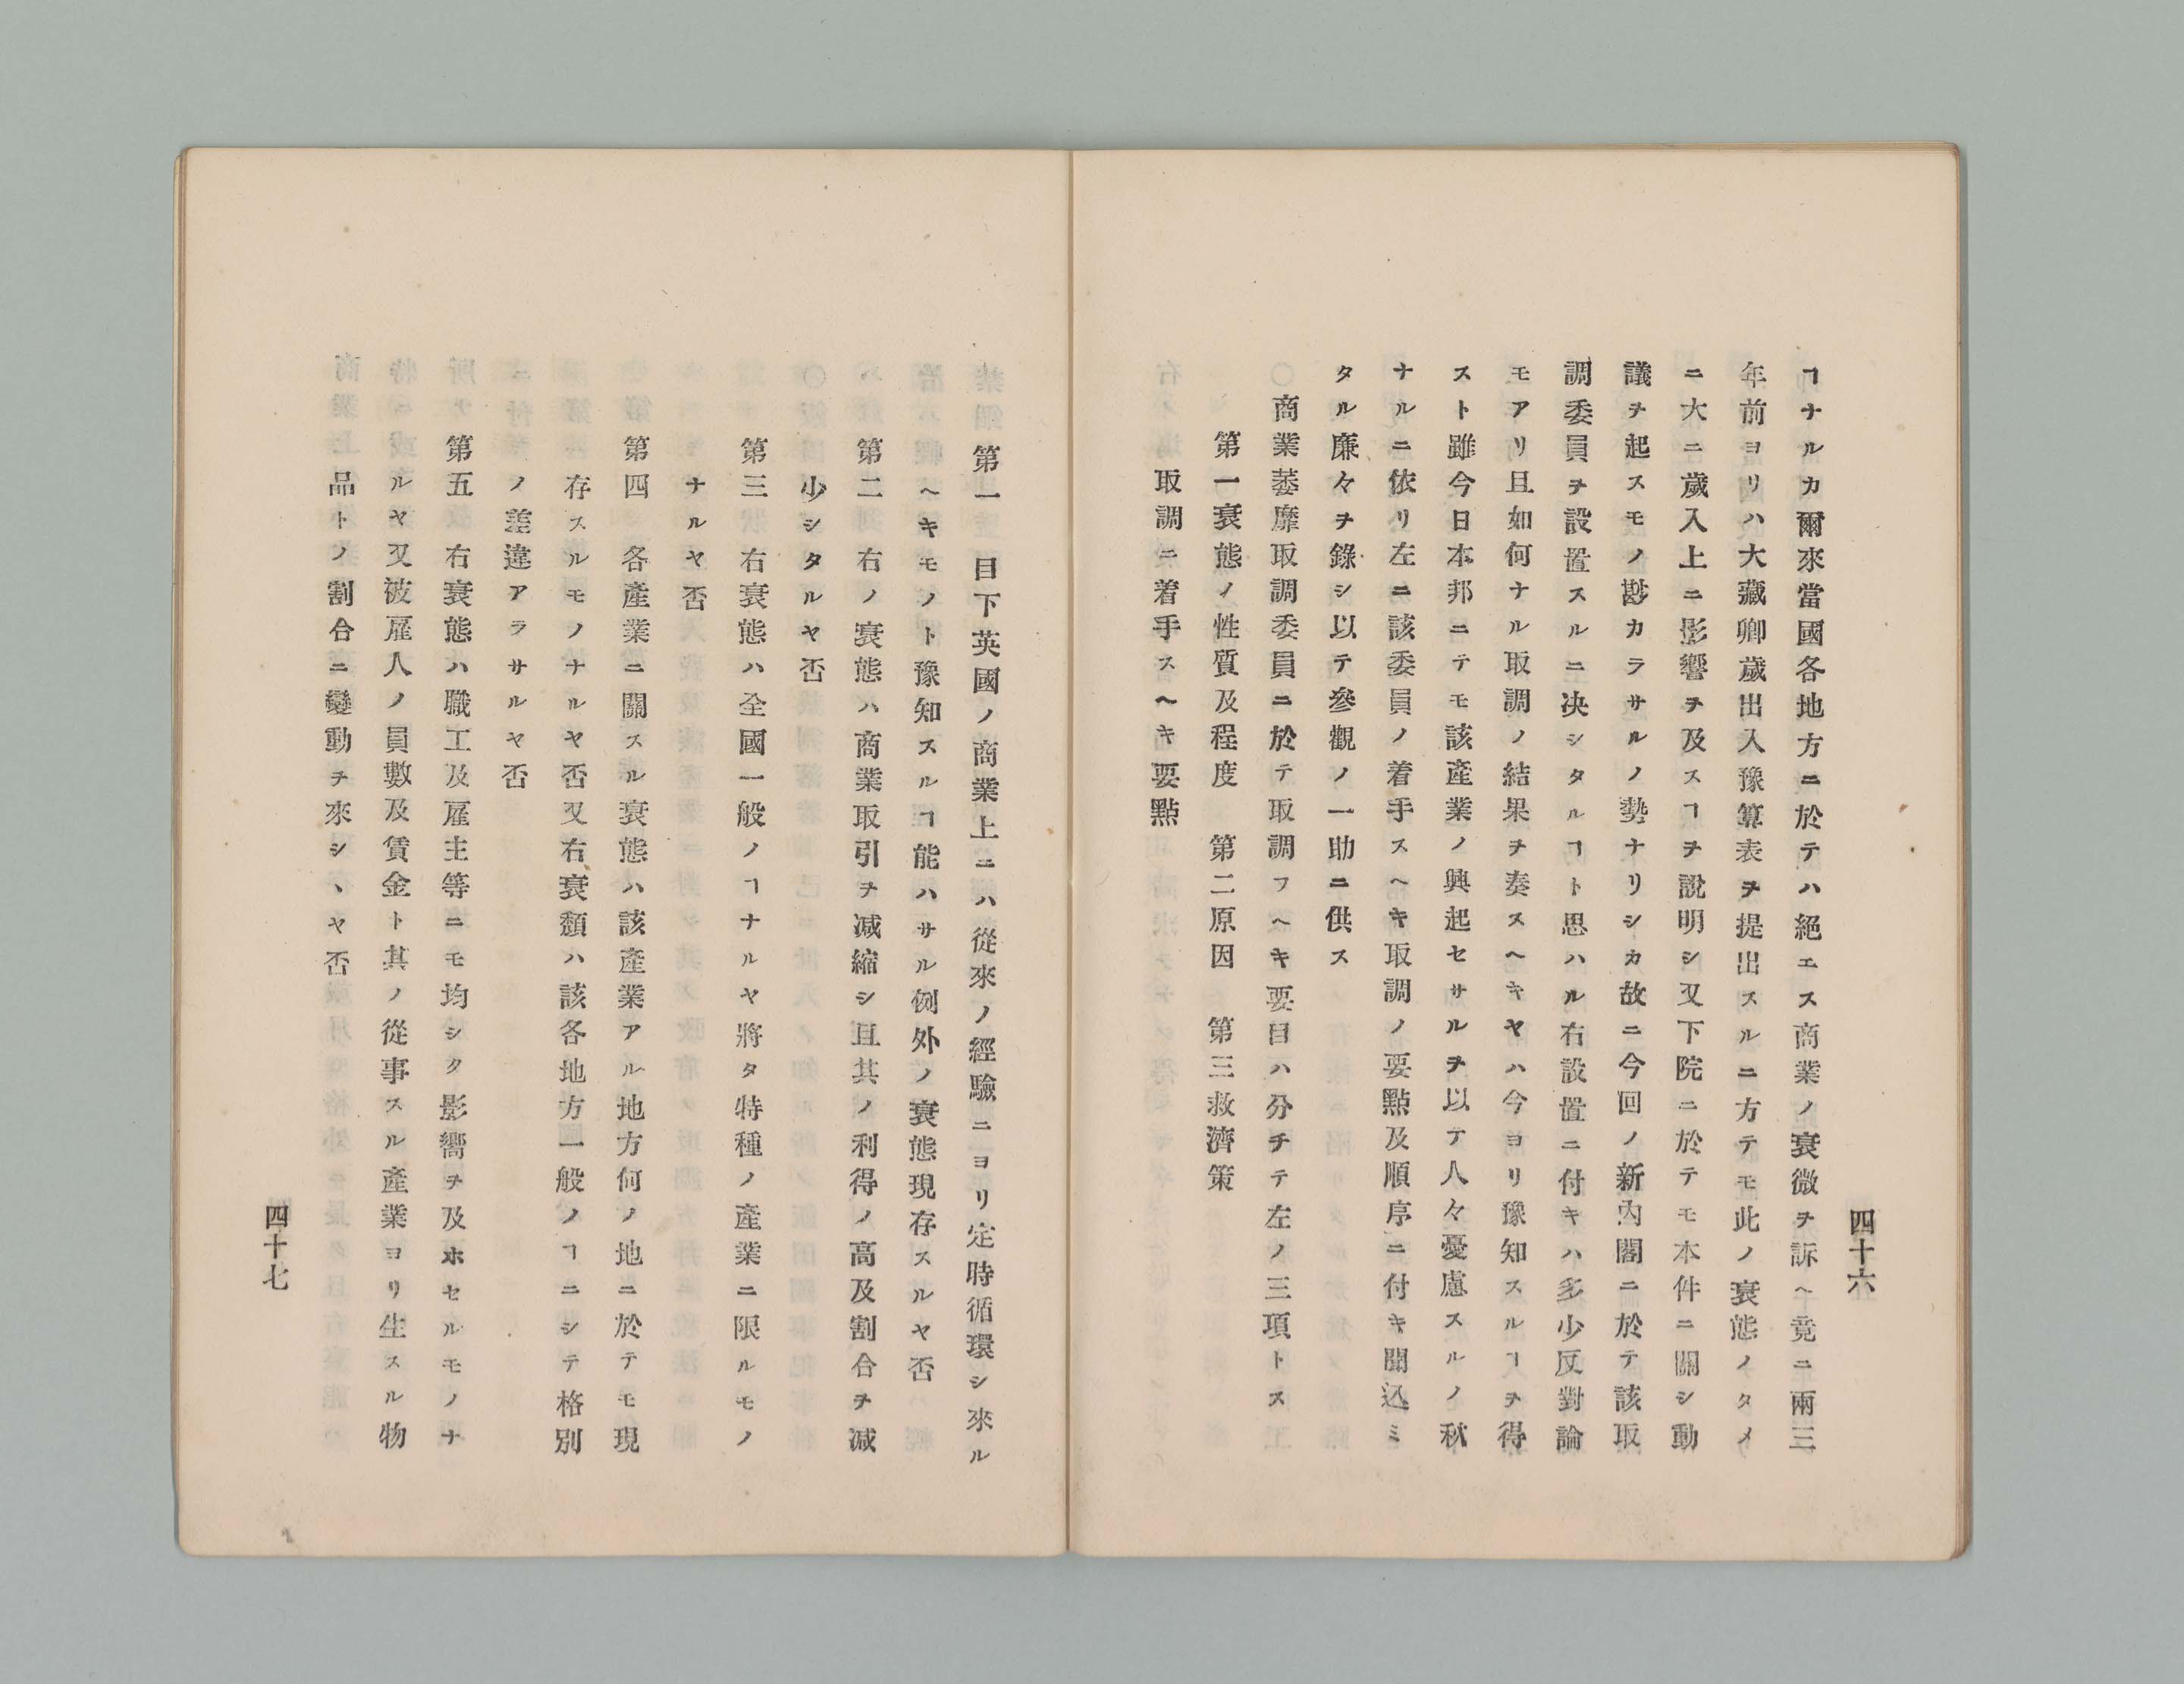 四十六
ヿナルカ爾來當國各地方ニ於テハ絕エス商業ノ衰微ヲ訴ヘ竟ニ兩三
年前ヨリハ大藏卿歲出入豫算表ヲ提出スルニ方テモ此ノ衰態ノタメ
ニ大ニ歲入上ニ影響ヲ及スヿヲ說明シ又下院ニ於テモ本件ニ關シ動
議ヲ起スモノ尠カラサルノ勢ナリシカ故ニ今回ノ新內閣ニ於テ該取
調委員ヲ設置スルニ决シタルヿト思ハル右設置ニ付キハ多少反對論
モアリ且如何ナル取調ノ結果ヲ奏スヘキヤハ今ヨリ豫知スルヿヲ得
スト雖今日本邦ニテモ該產業ノ興起セサルヲ以テ人々憂慮スルノ秋
ナルニ依リ左ニ該委員ノ着手スヘキ取調ノ要點及順序ニ付キ聞込ミ
タル廉々ヲ錄シ以テ參觀ノ一助ニ供ス
○商業萎靡取調委員ニ於テ取調フヘキ要目ハ分チテ左ノ三項トス
第一衰態ノ性質及程度　第二原因　第三救濟策
取調ニ着手スヘキ要點
第一　目下英國ノ商業上ニハ從來ノ經驗ニヨリ定時循環シ來ル
ヘキモノト豫知スルヿ能ハサル例外ノ衰態現存スルヤ否
第二　右ノ衰態ハ商業取引ヲ减縮シ且其ノ利得ノ高及割合ヲ减
少シタルヤ否
第三　右衰態ハ全國一般ノヿナルヤ將タ特種ノ產業ニ限ルモノ
ナルヤ否
第四　各產業ニ關スル衰態ハ該產業アル地方何ノ地ニ於テモ現
存スルモノナルヤ否又右衰頽ハ該各地方一般ノヿニシテ格別
ノ差違アラサルヤ否
第五　右衰態ハ職工及雇主等ニモ均シク影嚮ヲ及ホセルモノナ
ルヤ又被雇人ノ員數及賃金ト其ノ從事スル產業ヨリ生スル物
品トノ割合ニ變動ヲ來シヽヤ否
四十七